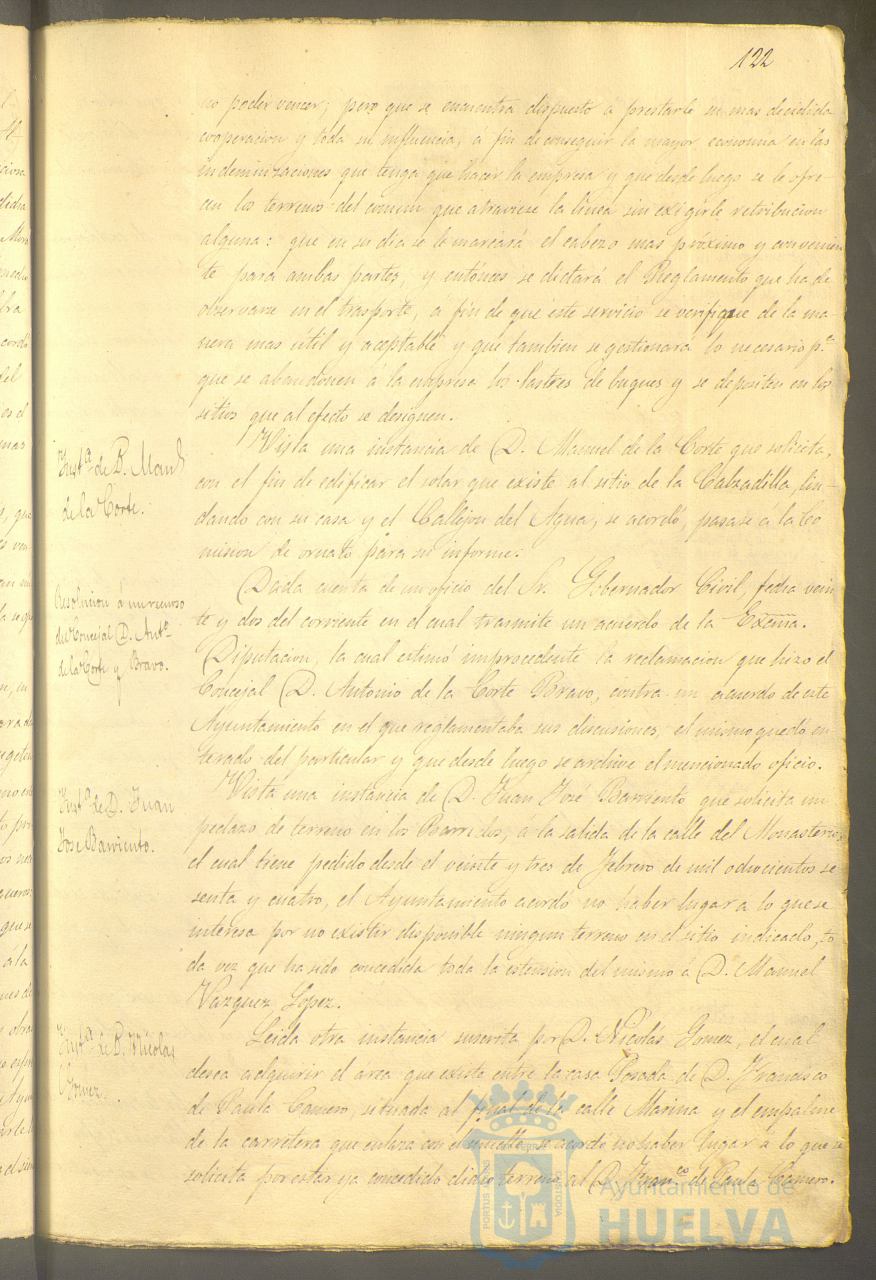 122
no poder vencer; pero que se encuentra dispuesto á prestarle su mas decidida
cooperacion y toda su influencia, á fin de conseguir la mayor economia en las
indemnizaciones que tenga que hacer la empresa y que desde luego se le ofre-
cen los terrenos del comun que atraviese la linea sin exigirle retribucion
alguna: que en su dia se le marcará el cabezo mas próximo y convenien
te para ambas partes, y entónces se dictará el Reglamento que ha de
observarse en el trasporte, á fin de que éste servicio se verifique de la ma
nera mas útil y aceptable y que tambien se gestionará lo necesario p.ª
que se abandonen á la empresa los lastres de buques y se depositen en los
sitios que al efecto se designen.
Inst.ª de D. Man.l
de la Corte.
Vista una instancia de D. Manuel de la Corte que solicita,
con el fin de edificar el solar que existe al sitio de la Calzadilla, lin-
dando con su casa y el Callejon del Agua, se acordó, pasase á la Co
mision de ornato para su informe.
Resolucion á un recurso
del Concejal D. Ant.º
de la Corte y Bravo.
Dada cuenta de un oficio del Sr. Gobernador Civil, fecha vein
te y dos del corriente en el cual trasmite un acuerdo de la Exc̃ma.
Diputacion, la cual estimó improcedente la reclamacion que hizo el
Concejal D. Antonio de la Corte Bravo, contra un acuerdo de este
Ayuntamiento en el que reglamentaba sus discusiones, el mismo quedó en
terado del particular y que desde luego se archive el mencionado oficio.
Inst.ª de D. Juan
José Barriento.
Vista una instancia de D. Juan José Barriento que solicita un
pedazo de terreno en los Barridos, á la salida de la calle del Monasterio,
el cual tiene pedido desde el veinte y tres de Febrero de mil ochocientos se
senta y cuatro, el Ayuntamiento acordó no haber lugar a lo que se
interesa por no existir disponible ningun terreno en el sitio indicado, to
da vez que ha sido concedida toda la estension del mismo á D. Manuel
Vazquez Lopez.
Inst.ª de D. Nicolas
Gomez.
Leida otra instancia suscrita por D. Nicolás Gomez, el cual
desea adquirir el area que existe entre la casa Posada de D. Francisco
de Paula Camero, situada al final de la calle Marina y el empalme
de la carretera que enlaza con el muelle, se acordó no haber lugar a lo que se
solicita por estar ya concedido dicho terreno al D. Fran.co de Paula Camero.
Ayuntamiento de
HUELVA